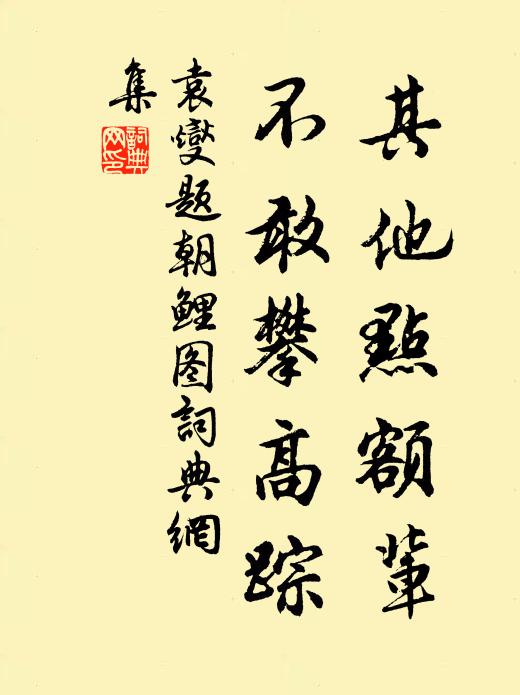 其他點額輩
不敢攀高踪
袁燮题朝鲤图詞典網
集
詞典
网印